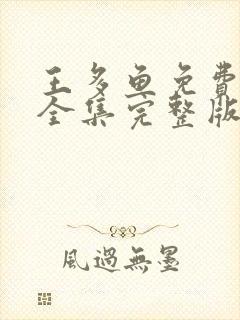 王多鱼免費
全集完整版
風過無墨